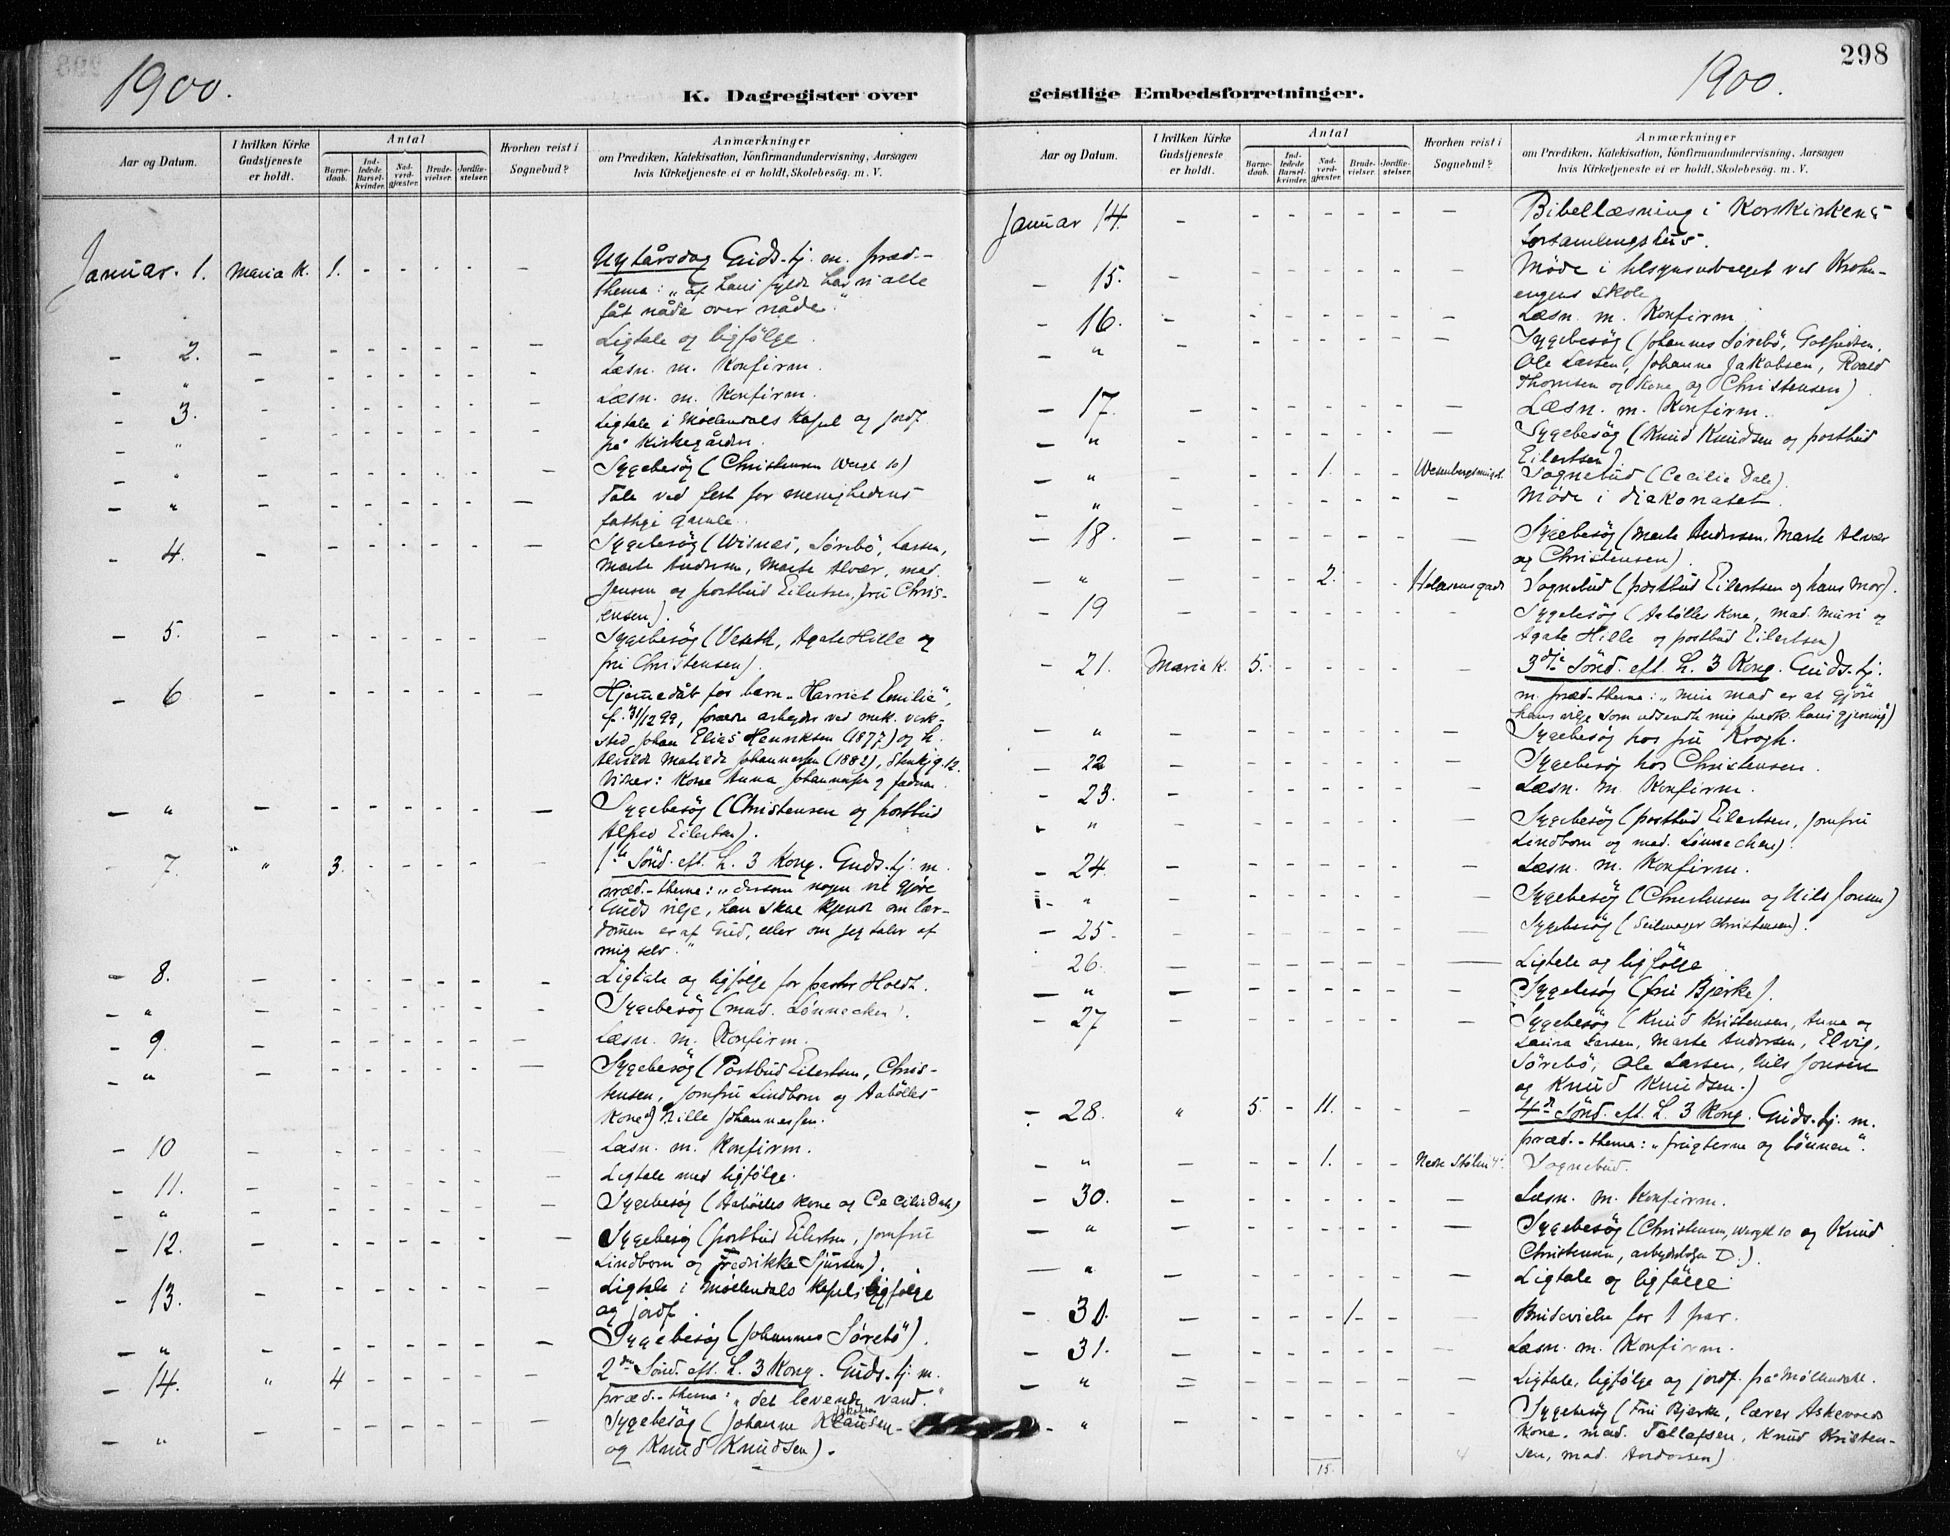 1900.
K. Dagregister over
Aar og Datum.
I hvilken Kirke Gudstjeneste er holdt.
Antal
Barnedaab.
Indledede Barselkvinder.
Nadverdgjæster.
Brudevielser.
Jordfæstelser.
Hvorhen reist i Sognebud?
Anmærkninger
om Prædiken, Katekisation, Konfirmandundervisning, Aarsagen
hvis Kirketjeneste ei er holdt, Skolebesøg. m. V.
Januar. 1. Maria K. 1. - - - - - Nytårsdag Guds.tj. m. præd.-
thema: „af hans fylde har vi alle
fåt nåde over nåde."
- 2. - - - - - - - Ligtale og ligfølge.
" - - - - - - - Læsn. m. Konfirm.
- 3. - - - - - - - Læsn. m. Konfirm.
- " - - - - - - Ligtale i Møllendals Kapel og jordf.
på Kirkegården.
- " - - - - - - - Sygebesøg (Christensen Wergl 10)
- " - - - - - - - Tale ved fest for menighedens
fattige gamle.
- 4. - - - - - - - Sygebesøg (Wisnes, Sørebö, Larsen,
Marte Andersen, Marte Alvær, mad.
Jensen og postbud Eilertsen, fru Chris-
tensen).
- 5. - - - - - - - Sygebesøg (Veseth, Agate Hille og
fru Christensen).
- 6 - - - - - - - Hjemmedåb for barn „Harriet Emilie",
f. 31/12 99, forældre arbejder ved mek. verk-
sted Johan Elias Henriksen (1877) og h.
Alvilde Matilde Johannessen (1882), Stenkjg. 12.
Vidner: Kone Anna Johannessen og faderen
- " - - - - - - - Sygebesøg (Christensen og postbud
Alfred Eilertsen).
- 7. " 3. - - - - - 1ste Sönd. eft. H. 3 Kong. Guds.tj. m.
præd.-thema: „dersom nogen vil gjøre
Guds vilje, han skal kjende om lær-
dommen er af Gud, eller om jeg taler af
mig selv."
- 8. - - - - - - - Ligtale og ligfølge for pastor Holdt.
- " - - - - - - - Sygebesøg (mad. Lönnechen).
- 9. - - - - - - - Læsn. m. Konfirm.
- " - - - - - - - Sygebesøg (Postbud Eilertsen, Chris-
tensen, jomfru Lindbom og Aabölles
kone og Nille Johannessen.
- 10 - - - - - - - Læsn. m. Konfirm.
- 11. - - - - - - - Ligtale med ligfølge.
- " - - - - - - - Sygebesøg (Aabölles kone og Cecilie Dale)
- 12. - - - - - - - Sygebesøg (postbud Eilertsen, jomfru
Lindbom og Fredrikke Sjursen).
- 13. - - - - - - - Ligtale i Møllendals kapel ligfølge
og jordf.
- " - - - - - - - Sygebesøg (Johannes Sørebö).
- 14. " 4 - - - - 2den Sönd. eft. H. 3 Kong. Guds.tj. m.
præd.-thema: „det levende vand."
- " - - - - - - Sygebesøg (Johanne Klausen-
og Knud Knudsen).
298
1900.
geistlige Embedsforretninger.
Aar og Datum.
I hvilken Kirke Gudstjeneste er holdt.
Antal
Barnedaab.
Indledede Barselkvinder.
Nadverdgjæster.
Brudevielser.
Jordfæstelser.
Hvorhen reist i Sognebud?
Anmærkninger
om Prædiken, Katekisation, Konfirmandundervisning, Aarsagen
hvis Kirketjeneste ei er holdt, Skolebesøg. m. V.
Januar 14. - - - - - - - Bibellæsning i Korskirkens
forsamlingshus.
- 15. - - - - - - - Møde i tilsynsudvalget ved Krohn-
engens skole
- 16. - - - - - - - Læsn. m. Konfirm
- " - - - - - - Sygebesøg (Johannes Sørebö,
Ole Larsen, Johanne Jakobsen, Roald
Thomsen og kone, og Christensen)
- 17. - - - - - - - Læsn. m. Konfirm.
- " - - - - - - - Sygebesøg (Knud Knudsen og postbud
Eilertsen)
- " - - - 1. - - Sognebud (Cecilie Dale)
- " - - - - - - - Møde i diakonatet
- 18. - - - - - - - Sygebesøg (Marte Andersen, Marte Alvær
og Christensen)
- " - - - 2. - - Sognebud (postbud Eilertsen og hans Mor).
- 19 - - - - - - - Sygebesøg (Aabölles kone, mad. Muri og
Agate Hille og postbud Eilertsen)
- 21. Maria K. 5. - - - - - 3dje Sönd. eft. H. 3 Kong. Guds.tj.
m. præd.-thema: „min mad er at gjöre
hans vilje som udsendte mig hans gjerning")
- " - - - - - - - Sygebesøg hos fru Krogh.
- 22 - - - - - - - Sygebesøg hos Christensen.
- 23. - - - - - - - Læsn. m. Konfirm.
- " - - - - - - - Sygebesøg (postbud Eilertsen, jomfru
Lindbom og mad. Lönnechen)
- 24. - - - - - - - Læsn. m. Konfirm.
- " - - - - - - - Sygebesøg (Christensen og Nils Jonsen)
- 25. - - - - - - - Sygebesøg (Seilmager Christensen).
- 26. - - - - - - - Ligtale og ligfølge
- " - - - - - - - Sygebesøg (fru Bjerke).
- 27 - - - - - - - Sygebesøg (Knud Kristensen, Anna og
Laura Larsen, Marte Andersen, Elvig,
Sørebö, Ole Larsen, Nils Jonsen
og Knud Knudsen.)
- 28. " 5. - 11. - - - 4de Sönd. eft. H. 3 Kong. Guds.tj. m.
præd.-thema: „frugterne og bönnen".
- " - - - 1. - - Sognebud.
- 30. - - - - - - - Læsn. m. Konfirm.
- " - - - - - - - Sygebesøg (Christensen, Wergl 10 og Knud
Christensen, D.)
- " - - - - - - - Ligtale og ligfølge
- 30. - - - - 1 - - Brudevielse for 1 par.
- 31. - - - - - - - Læsn. m. Konfirm.
- " - - - - - - - Ligtale, ligfølge og jordf. på Møllendal.
- " - - - - - - - Sygebesøg (Fru Bjerke, lærer Askevolds
kone, mad. Tollefsen, Knud Kristen-
sen, mad. Andersen)
15.